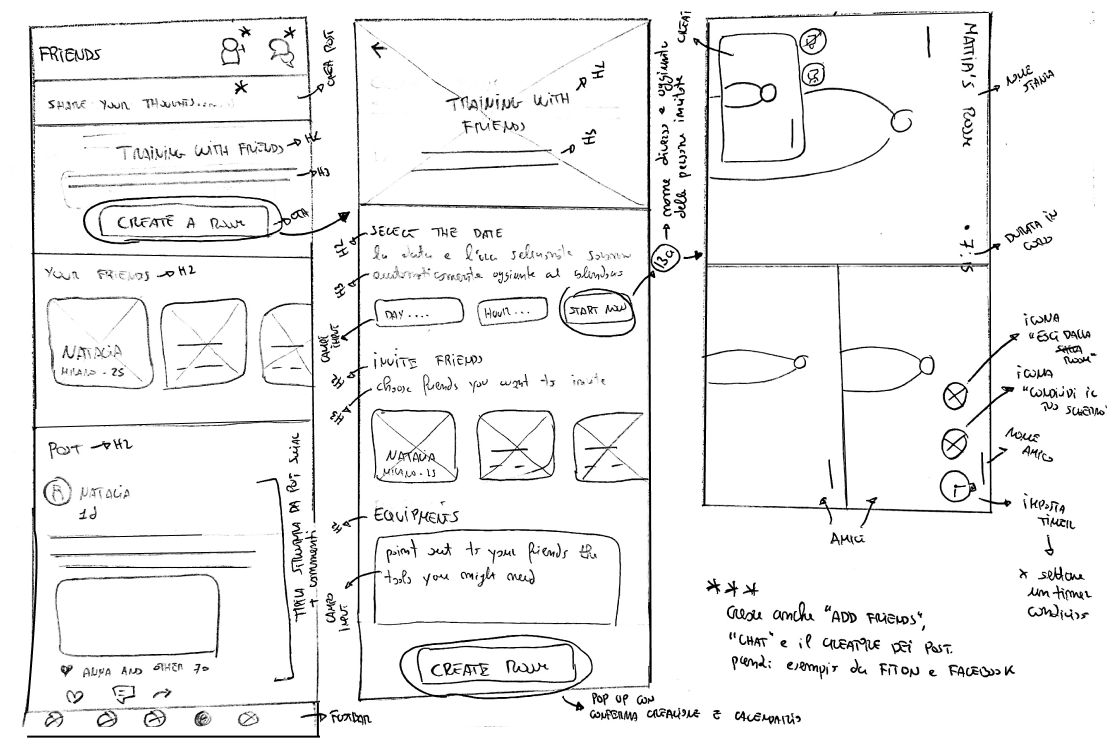 FRIENDS
SHARE YOUR THOUGHTS.....
AREA POST
TRAINING WITH FRIENDS
H2
H3
CREATE A ROOM
CTA
YOUR FRIENDS
H2
NATALIA
MILANO - 25
POST
H2
NATALIA
1d
TIPICA STRUTTURA DA POST SOCIAL
+ commenti
ANNA AND OTHER 70
TRAINING WITH
FRIENDS
H2
H3
SELECT THE DATE
H2
la data e l'ora selezionate saranno
automaticamente aggiunte al calendario
H3
DAY ....
HOUR ...
START NOW
CAMPI INPUT
INVITE FRIENDS
H2
choose friends you want to invite
H3
NATALIA
MILANO - 25
EQUIPMENTS
H2
point out to your friends the
tools you might need
CAMPO
INPUT
CREATE ROOM
POP UP CON
CONFERMA CREAZIONE E CALENDARIO
nome diverso e aggiunta
delle persone invitate
MATTIA'S ROOM
NOME
STANZA
7:15
DURATA IN
CORSO
ICONA
"ESCI DALLA
ROOM"
ICONA
"CONDIVIDI IL
TUO SCHERMO"
NOME
AMICO
IMPOSTA
TIMER
* settare
un timer
condiviso
AMICI
***
Creare anche "ADD FRIENDS",
"CHAT" e il CREATORE DEI POST.
prendi esempio da FITON e FACEBOOK